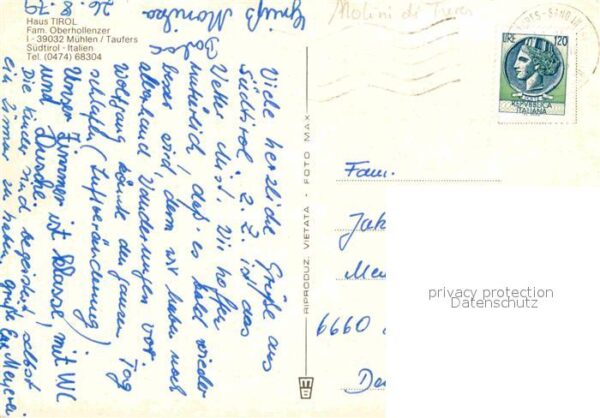 Haus TIROL
Fam. Oberhollenzer
I - 39032 Mühlen / Taufers
Südtirol - Italien
Tel. (0474) 68304
26.8.79
Viele herzliche Grüße aus
Südtirol. Z. Z. ist das
Wetter mist. Wir hoffen
natürlich, daß es bald wieder
besser wird, denn wir haben noch
allerhand Wanderungen vor.
Wolfgang könnte den ganzen Tag
schlafen (Luftveränderung)
Unser Zimmer ist Klasse mit WC
und Dusche.
Die Kinder sind begeistert, selbst
ein Zimmer zu haben. Grüße Fam. Meyerer
Gruß Monika
RIPRODUZ. VIETATA - FOTO MAX
Molini di Tures
LIRE 120
REPVBBLICA
ITALIANA
Fam.
Jak
Me
6660
privacy protection
Datenschutz